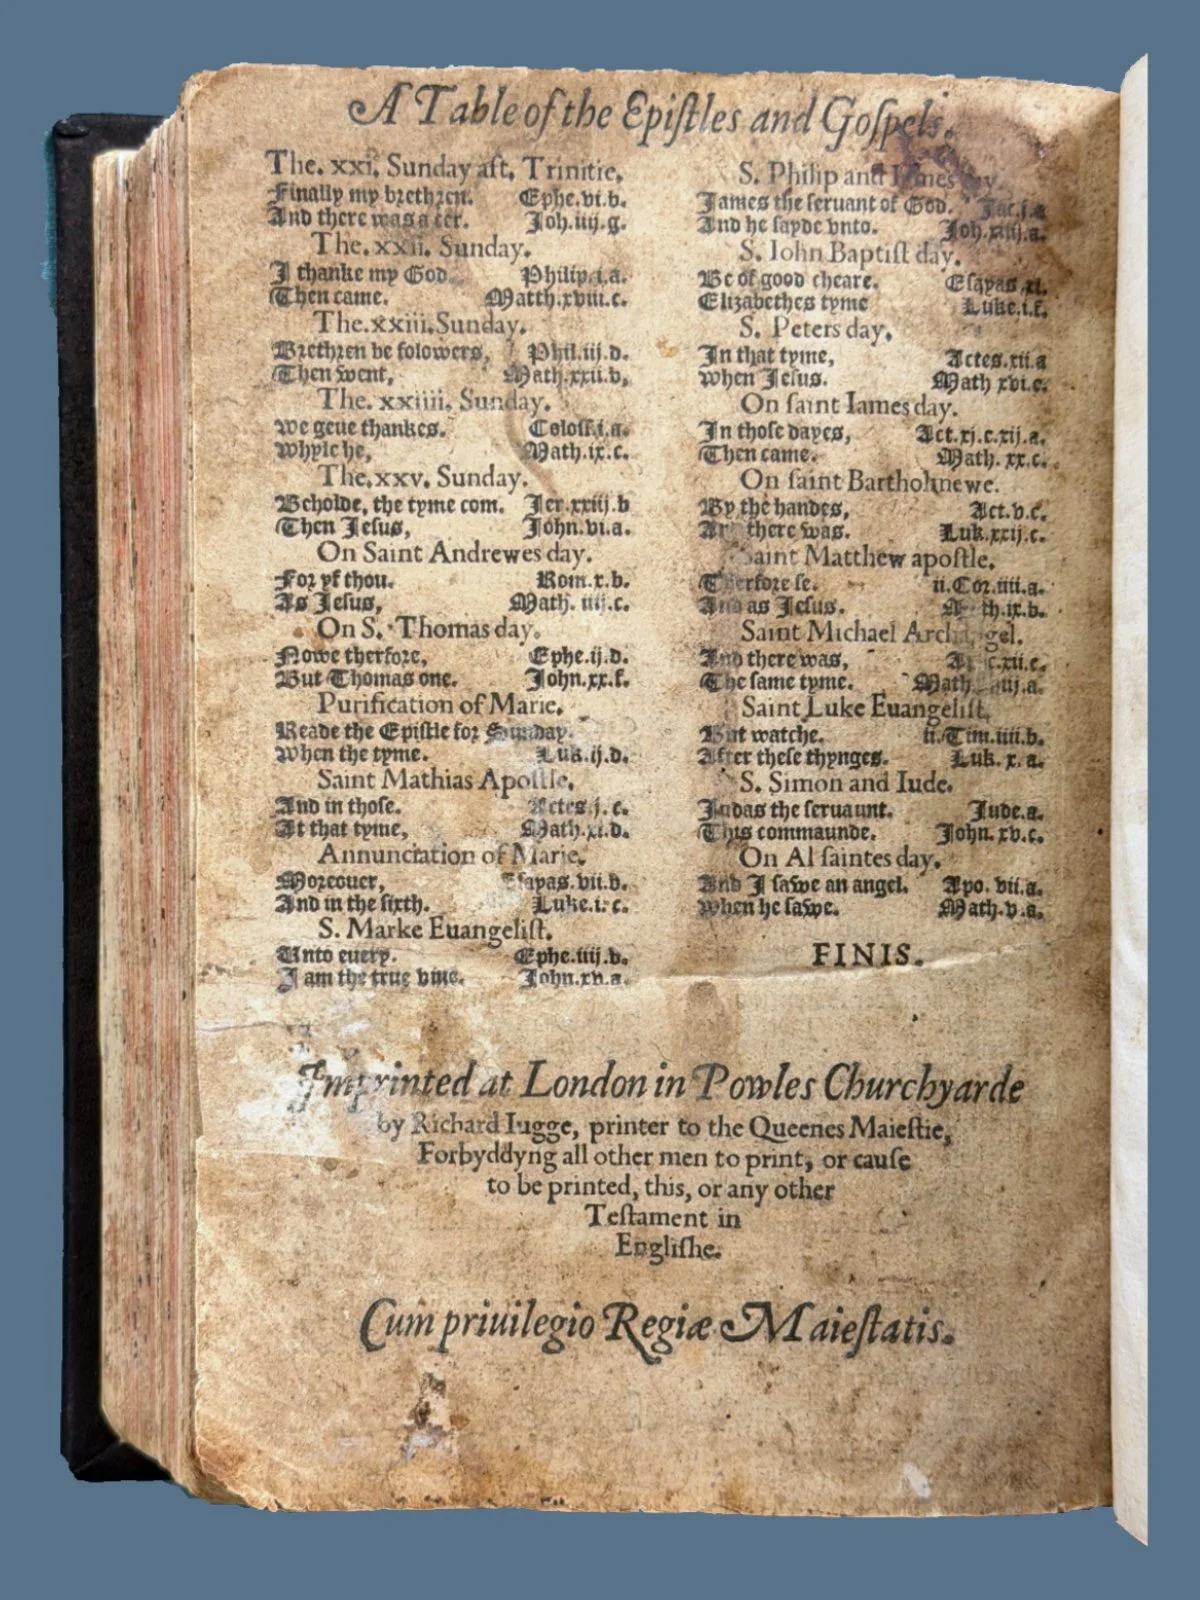 A Table of the Epiſtles and Goſpels.
The. xxi. Sunday aft. Trinitie.
Finally my brethren. Ephe.vi.b.
And there was a cer. Joh.iiij.g.
The. xxii. Sunday.
I thanke my God. Philip.i.a.
Then came. Matth.xviii.c.
The.xxiii.Sunday.
Brethren be folowers, Phil.iij.d.
Then went, Math.xxii.b,
The. xxiiii. Sunday.
We geue thankes. Coloſſ.i.a.
Whyle he, Math.ix.c.
The.xxv. Sunday.
Beholde, the tyme com. Jer.xxiij.b
Then Jeſus, John.vi.a.
On Saint Andrewes day.
For yf thou. Rom.x.b.
As Jeſus, Math. iiij.c.
On S. Thomas day.
Nowe therfore, Ephe.ij.d.
But Thomas one. John.xx.f.
Purification of Marie.
Reade the Epiſtle for Sunday.
When the tyme. Luk.ij.d.
Saint Mathias Apoſtle.
And in thoſe. Actes.j.c.
At that tyme, Math.xi.d.
Annunciation of Marie.
Moreouer, Eſayas.vii.b.
And in the ſixth. Luke.i.c.
S. Marke Euangeliſt.
Unto euery. Ephe.iiij.b.
I am the true vine. John.xv.a.
S. Philip and Iames day
James the ſeruant of God. Jac.i.a
And he ſayde vnto. Joh.xiiij.a.
S. Iohn Baptiſt day.
Be of good cheare. Eſayas.xl.
Elizabethes tyme Luke.i.f.
S. Peters day.
In that tyme, Actes.xii.a
When Jeſus. Math xvi.c.
On ſaint Iames day.
In thoſe dayes, Act.xj.c.xij.a.
Then came. Math. xx.c.
On ſaint Bartholmewe.
By the handes, Act.v.c.
there was. Luk.xxij.c.
Saint Matthew apoſtle.
Therfore ſe. ii.Cor.iiii.a.
And as Jeſus. ix.b.
Saint Michael Archangel.
And there was, xii.e.
The ſame tyme. Math. a.
Saint Luke Euangeliſt.
But watche. ii.Tim.iiii.b.
After theſe thynges. Luk. x. a.
S. Simon and Iude.
Judas the ſeruaunt. Jude.a.
This commaunde. John. xv.c.
On Al ſaintes day.
And I ſawe an angel. Apo. vii.a.
When he ſawe. Math.v.a.
FINIS.
Imprinted at London in Powles Churchyarde
by Richard Iugge, printer to the Queenes Maieſtie,
Forbyddyng all other men to print, or cauſe
to be printed, this, or any other
Teſtament in
Engliſhe.
Cum priuilegio Regiæ Maieſtatis.